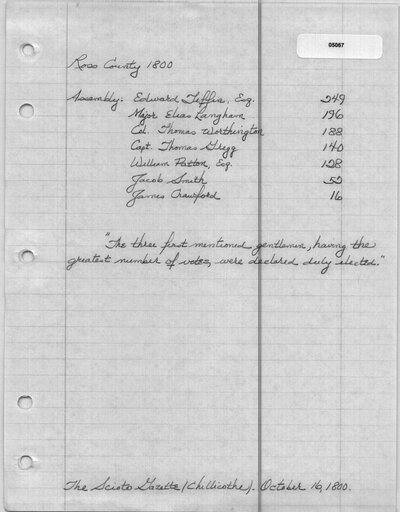 05067
Ross County 1800
Assembly: Edward Tiffin, Esq. 249
Major Elias Langham 196
Col. Thomas Worthington 188
Capt. Thomas Gregg 140
William Patton, Esq. 128
Jacob Smith 52
James Crawford 16
"The three first mentioned gentlemen, having the
greatest number of votes, were declared duly elected."
The Scioto Gazette (Chillicothe). October 16, 1800.